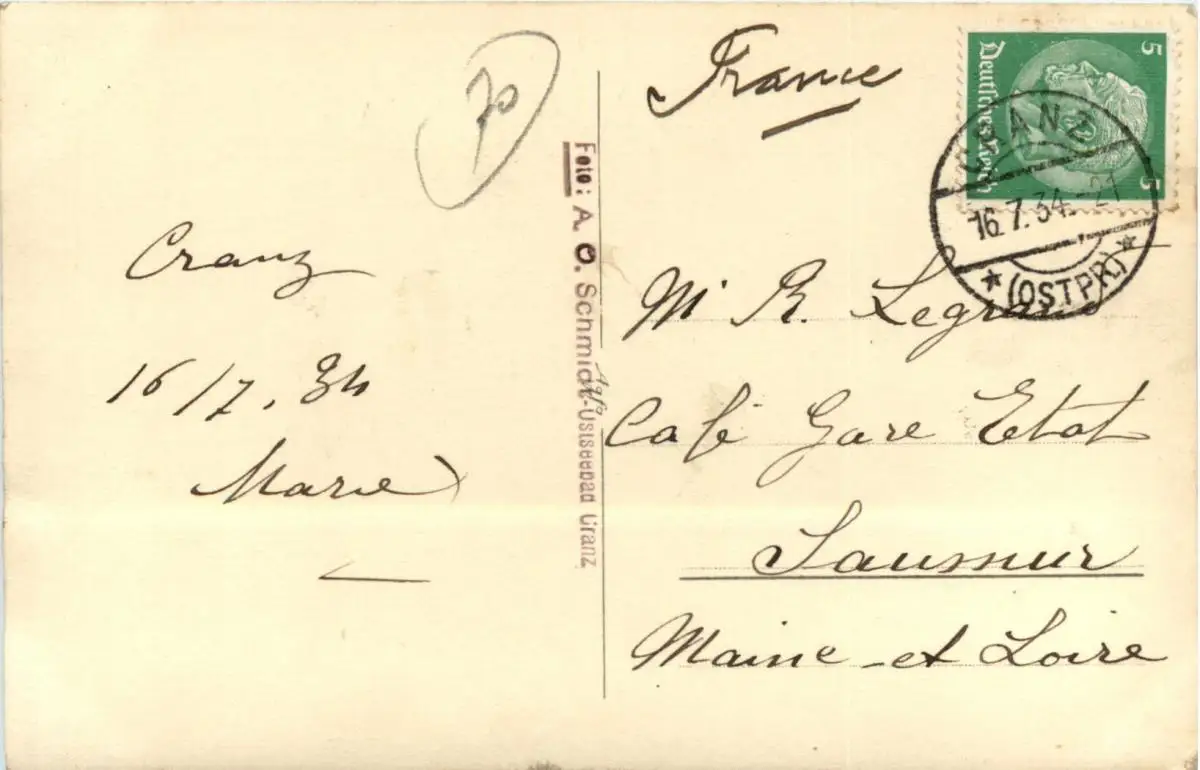 70
Cranz
16/7.34
Marie
Foto: A. O. Schmidt-Ostseebad Cranz
France
Deutsches Reich
5
5
CRANZ
16.7.34.-21
* (OSTPR) *
Mr R. Legrand
Café Gare Etat
Saumur
Maine-et Loire